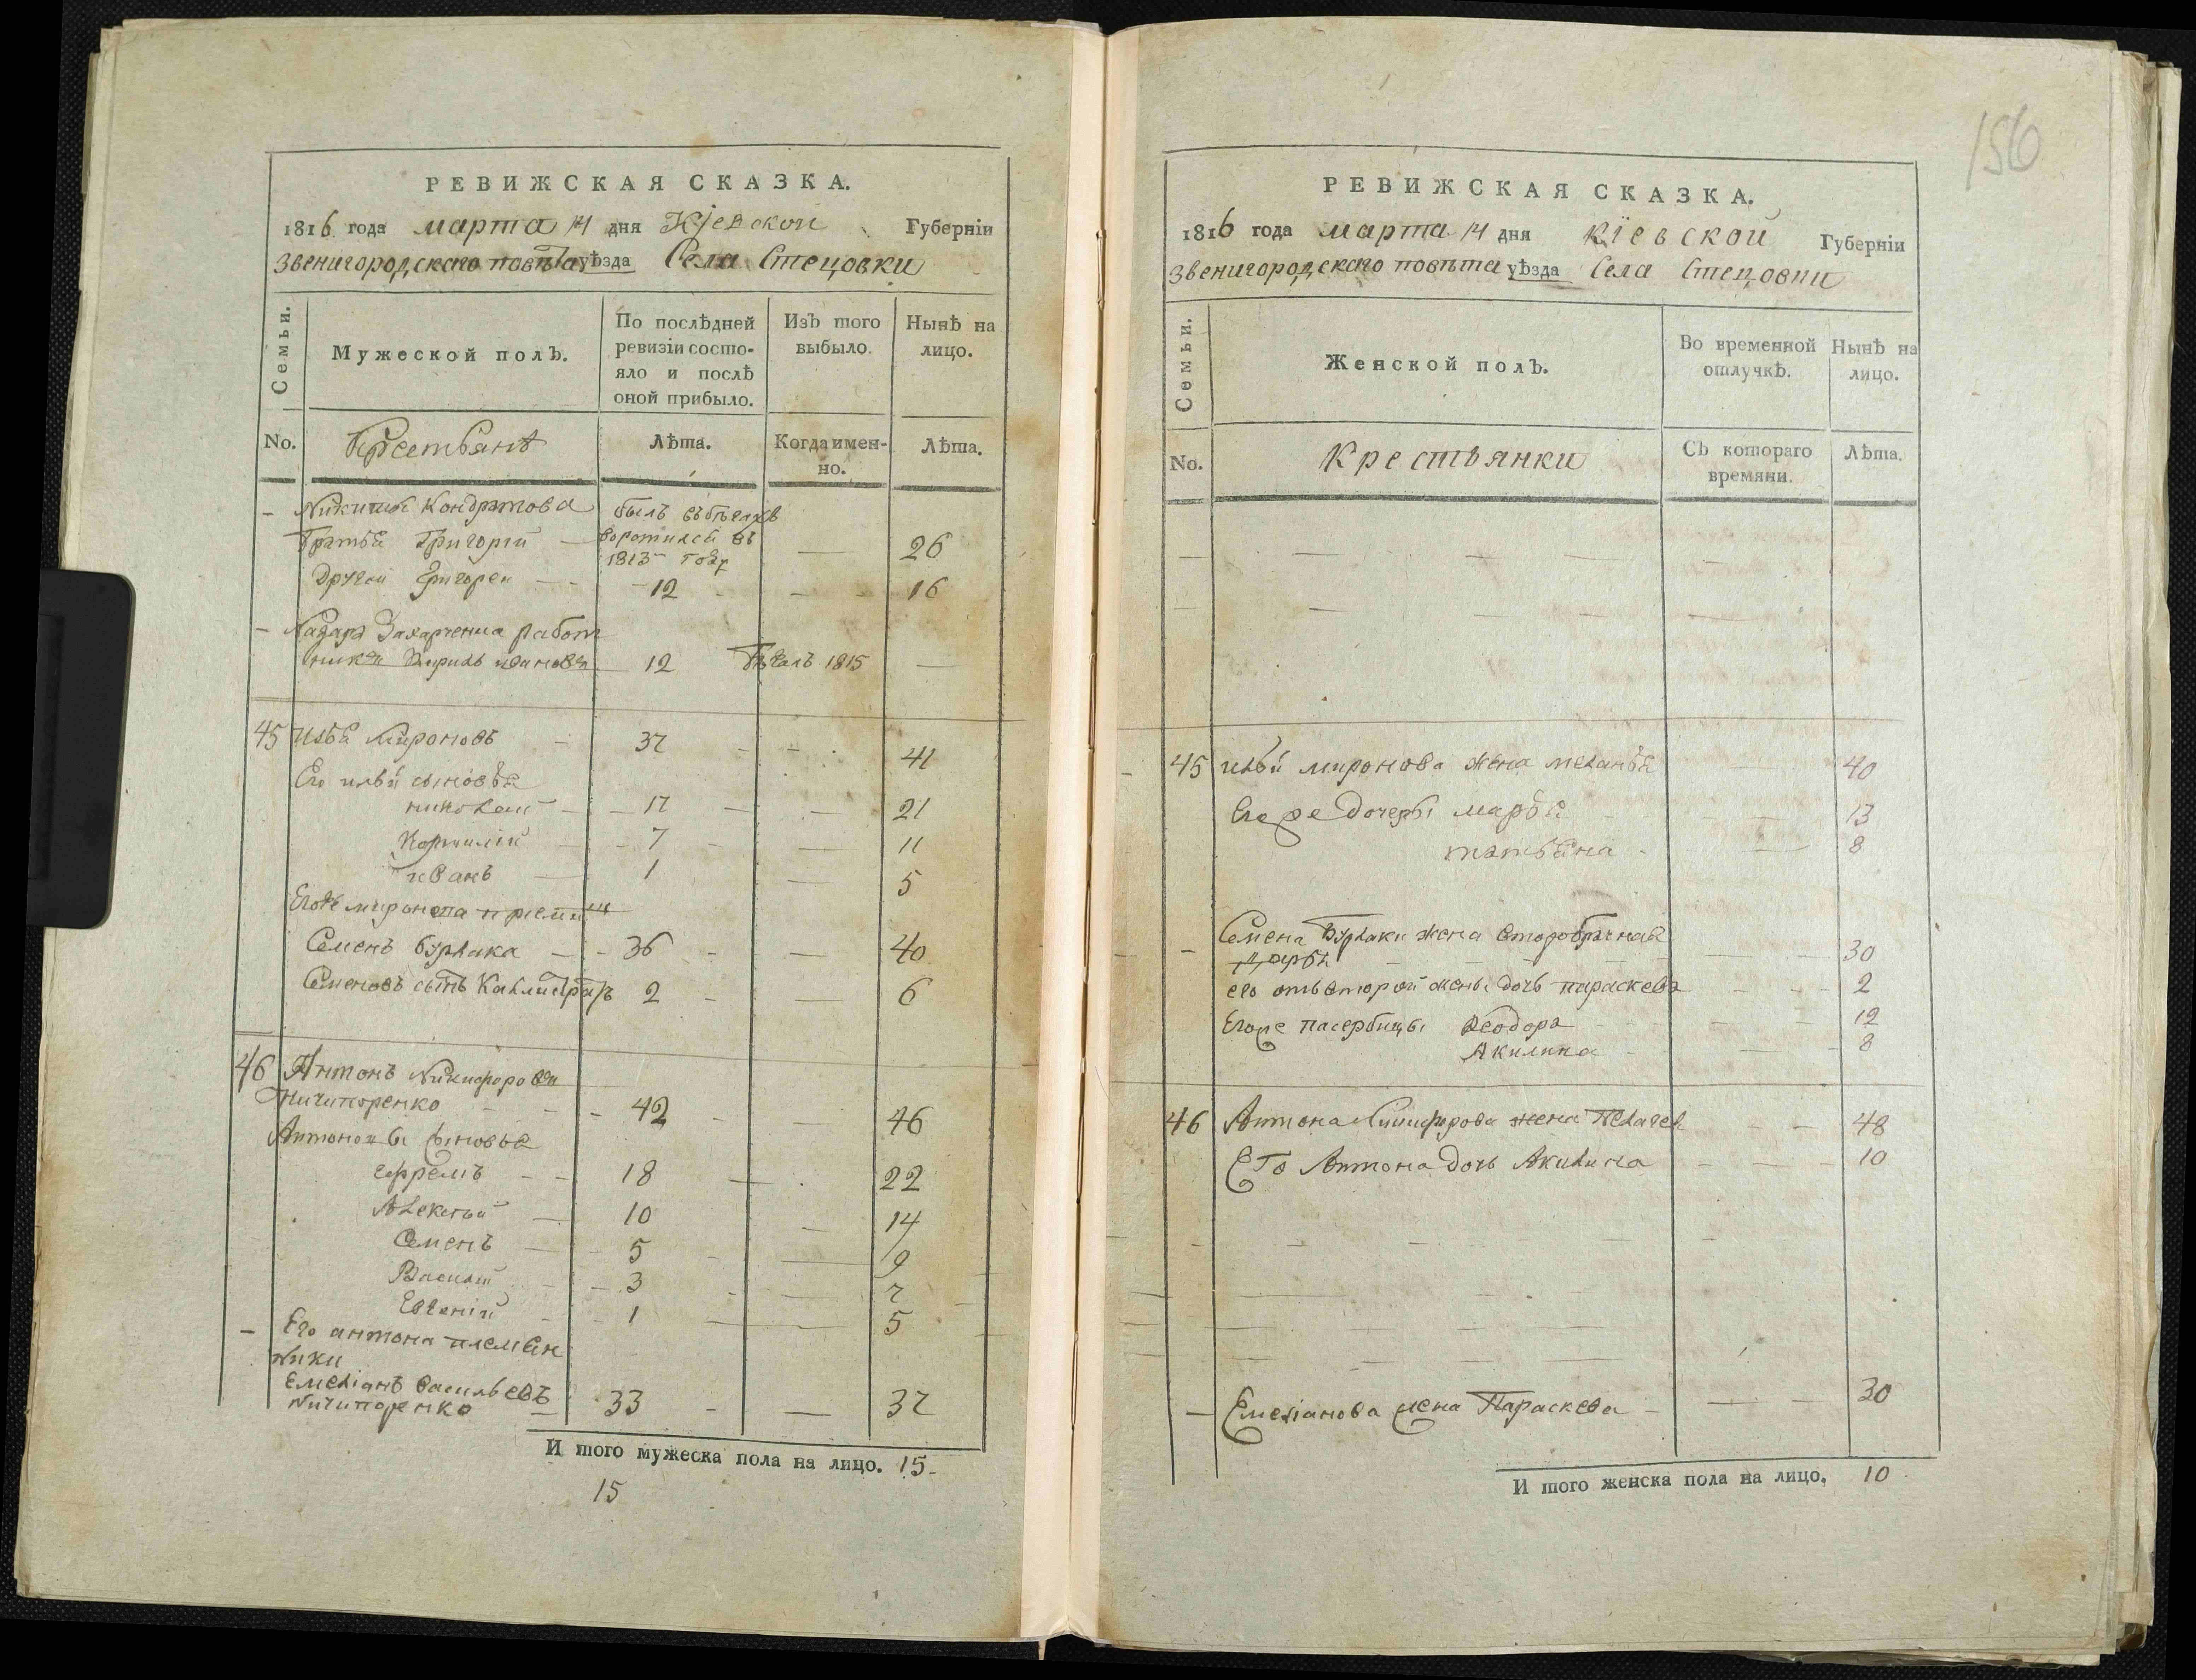 РЕВИЖСКАЯ СКАЗКА.
1816 года марта 14 дня Кіевской Губерніи
Звенигородскаго повѣта уѣзда Села Стецовки
Семьи.
Мужеской полъ.
По послѣдней ревизіи состояло и послѣ оной прибыло.
Изъ того выбыло.
Нынѣ на лицо.
No.
Крестьянѣ
Лѣта.
Когда именно.
Лѣта.
— Никиты Кондратова былъ въ бѣгахъ
братья Григорій — воротился въ 1813 году — 26
Другой Григорей — 12 — 16
— Назара Захарченка работ
никъ Кирилъ Ивановъ 12 бѣжалъ 1815 —
45 Илья Мироновъ — 37 — 41
Его ильи сыновья
николай — 17 — 21
Корнилій — 7 — 11
иванъ — 1 — 5
Егоже миронова
Семенъ бурлака — 36 — 40
Семеновъ сынъ Калистратъ 2 — 6
46 Антонъ Никифоровъ
Ничипоренко — 42 — 46
Антоновы сыновья
ефремъ — 18 — 22
Алексѣй — 10 — 14
Семенъ — 5 — 9
Василій — 3 — 7
Евгеній — 1 — 5
— Его антона племян
ники
Емеліанъ васильевъ
Ничипоренко — 33 — 37
И того мужеска пола на лицо. 15
15
156
РЕВИЖСКАЯ СКАЗКА.
1816 года марта 14 дня Кіевской Губерніи
Звенигородскаго повѣта уѣзда Села Стецовки
Семьи.
Женской полъ.
Во временной отлучкѣ.
Нынѣ на лицо.
No.
Крестьянки
Съ котораго времяни.
Лѣта.
45 ильи миронова жена меланья — 40
Егоже дочеры марья — 13
татьяна — 8
— Семена Бурлаки жена второбрачная
марья — 30
его отъ второй жены дочь параскева — 2
Егоже пасербицы Феодора — 12
Акилина — 8
46 Антона Никифорова жена Пелагея — 48
Его Антона дочь Акилина — 10
— Емеліанова жена Параскева — 30
И того женска пола на лицо, 10